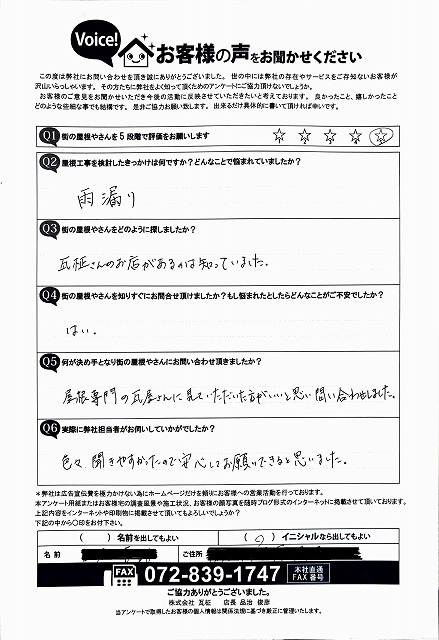 Voice!
お客様の声をお聞かせください
この度は弊社にお問い合わせを頂き誠にありがとうございました。 世の中には弊社の存在やサービスをご存知ないお客様が
沢山いらっしゃいます。 その方たちに弊社をよく知って頂くためのアンケートにご協力頂けないでしょうか。
お客様のご意見をお聞かせいただき今後の活動に反映させていただきたいと考えております。 良かったこと、嬉しかったこと
どのような些細な事でも結構です。 是非ご協力お願い致します。 出来るだけ具体的に書いて頂ければ幸いです。
Q1 街の屋根やさんを5段階で評価をお願いします ☆ ☆ ☆ ☆ ☆
Q2 屋根工事を検討したきっかけは何ですか？どんなことで悩まれていましたか？
雨漏り
Q3 街の屋根やさんをどのように探しましたか？
瓦柾さんのお店があるのは知っていました。
Q4 街の屋根やさんを知りすぐにお問合せ頂けますか？もし悩まれたとしたらどんなことがご不安でしたか？
はい。
Q5 何が決め手となり街の屋根やさんにお問い合わせ頂きましたか？
屋根専門の瓦屋さんに見ていただいた方がいいと思い問い合わせしました。
Q6 実際に弊社担当者がお伺いしていかがでしたか？
色々、聞きやすかったので安心してお願いできると思いました。
＊弊社は広告宣伝費を極力かけない為にホームページだけを頼りにお客様への営業活動を行っております。
本アンケート用紙またはお客様宅の調査風景や施工状況、お客様の顔写真を随時ブログ形式のインターネットに掲載させて頂いております。
上記内容をインターネットや印刷物に掲載させて頂いてもよろしいでしょうか？
下記の中から○印をお付下さい。
（ ）名前を出してもよい （○）イニシャルなら出してもよい
名前 ご住所
FAX 072-839-1747 本社直通 FAX番号
ご協力ありがとうございました。
株式会社 瓦柾 店長 品治 俊彦
当アンケートで取得したお客様の個人情報は関係法規に基づき厳正に管理いたします。